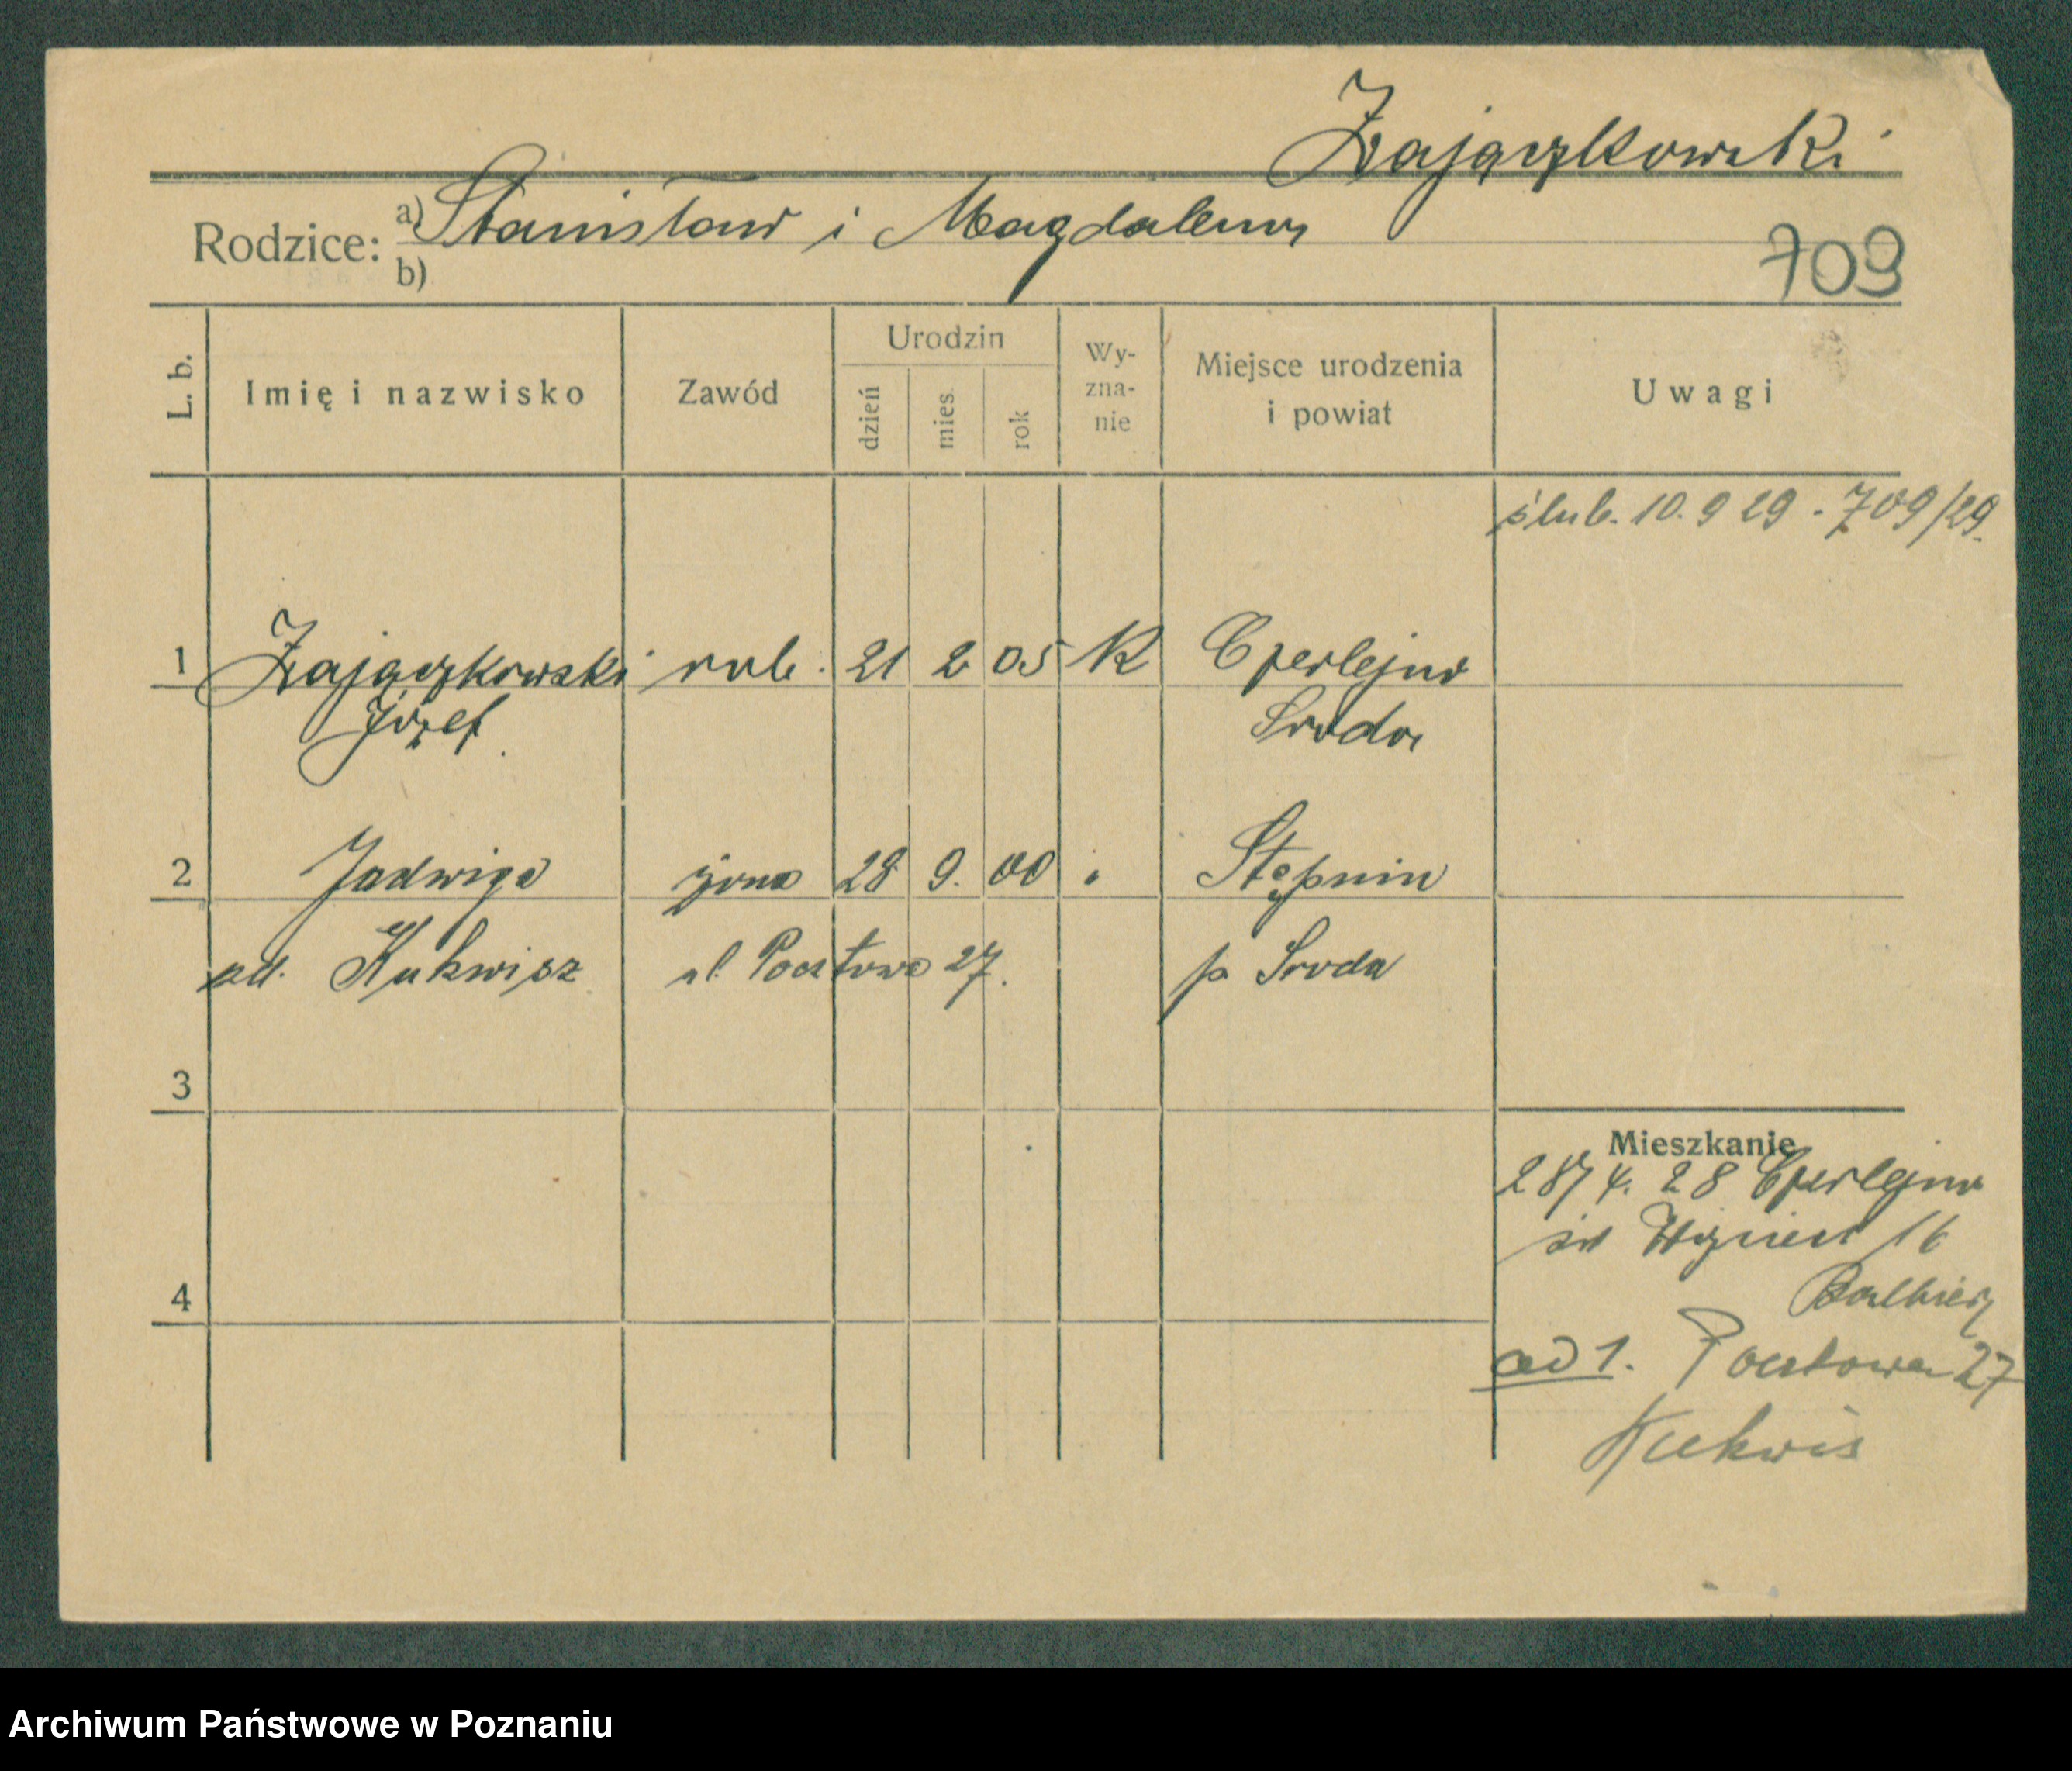 Zajączkowski
Rodzice: a) Stanisław i Magdalena
b)
709
L. b. Imię i nazwisko Zawód Urodzin dzień mies. rok Wyznanie Miejsce urodzenia i powiat Uwagi
ślub. 10. 9 29 - 709/29.
1 Zajączkowski rob. 21 2 05 K Czerlejno
Józef Sroda
2 Jadwiga żona 28 9. 00 " Stępnin
zd. Kukwisz ul. Pocztowa 27. p. Sroda
3
Mieszkanie
28/4. 28 Czerlejno
16
4
ad 1. Pocztowa 27
Kukwis
Archiwum Państwowe w Poznaniu